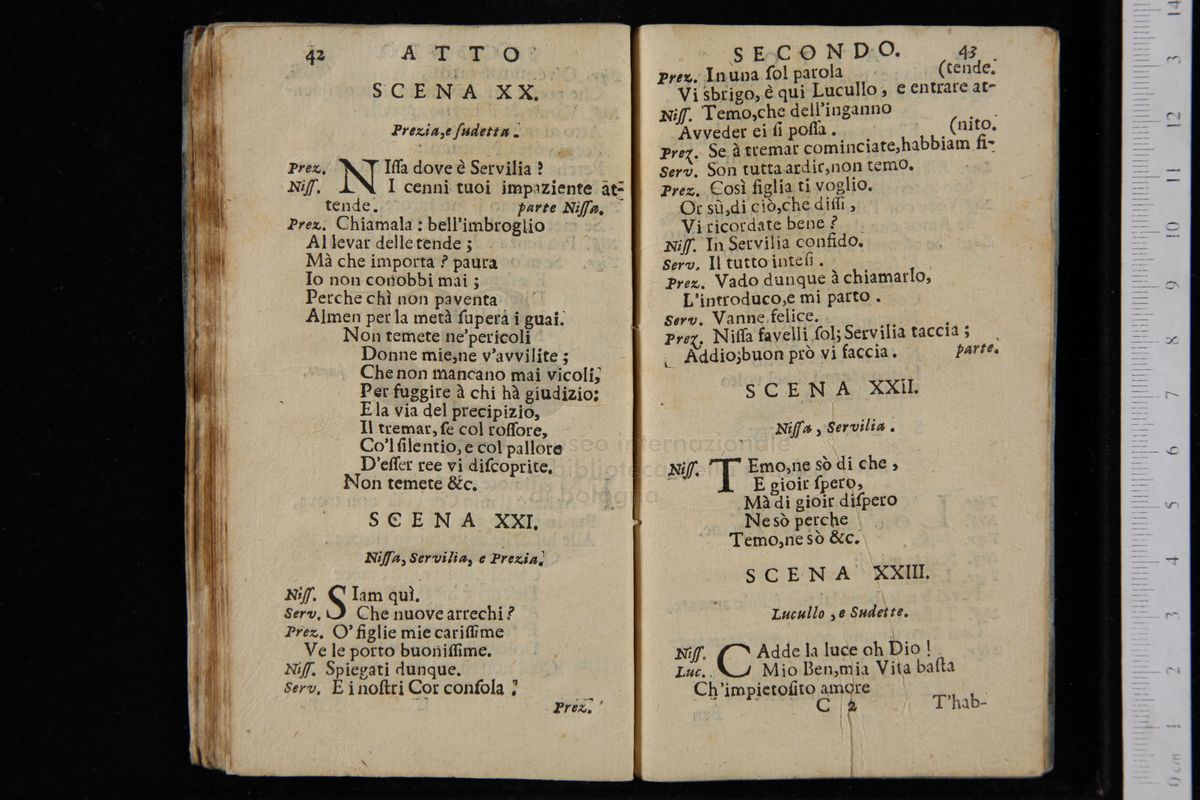 42 ATTO
SCENA XX.
Prezia, e sudetta.
Prez. NIssa dove è Servilia?
Niss. I cenni tuoi impaziente at-
tende. parte Nissa.
Prez. Chiamala: bell'imbroglio
Al levar delle tende;
Mà che importa? paura
Io non conobbi mai;
Perche chì non paventa
Almen per la metà supera i guai.
Non temete ne'pericoli
Donne mie, ne v'avvilite;
Che non mancano mai vicoli,
Per fuggire à chi hà giudizio:
E la via del precipizio,
Il tremar, se col rossore,
Co'l silentio, e col pallore
D'esser ree vi discoprite.
Non temete &c.
SCENA XXI.
Nissa, Servilia, e Prezia.
Niss. SIam quì.
Serv. Che nuove arrechi?
Prez. O' figlie mie carissime
Ve le porto buonissime.
Niss. Spiegati dunque.
Serv. E i nostri Cor consola.
Prez.
SECONDO. 43
Prez. In una sol parola (tende.
Vi sbrigo, è qui Lucullo, e entrare at-
Niss. Temo, che dell'inganno
Avveder ei si possa. (nito.
Prez. Se à tremar cominciate, habbiam fi-
Serv. Son tutta ardir, non temo.
Prez. Così figlia ti voglio.
Or sù, di ciò, che dissi,
Vi ricordate bene?
Niss. In Servilia confido.
Serv. Il tutto intesi.
Prez. Vado dunque à chiamarlo,
L'introduco, e mi parto.
Serv. Vanne felice.
Prez. Nissa favelli sol; Servilia taccia;
Addio; buon prò vi faccia. parte.
SCENA XXII.
Nissa, Servilia.
Niss. TEmo, ne sò di che,
E gioir spero,
Mà di gioir dispero
Ne sò perche
Temo, ne sò &c.
SCENA XXIII.
Lucullo, e Sudette.
Niss. CAdde la luce oh Dio!
Luc. Mio Ben, mia Vita basta
Ch'impietosito amore
C 2 T'hab-